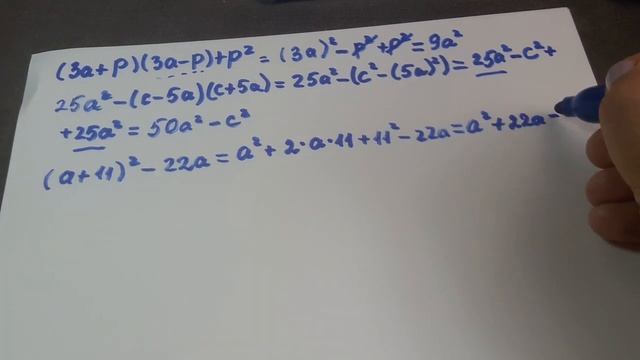 (3a+p)(3a-p)+p² = (3a)²-p²+p²=9a²
25a²-(c-5a)(c+5a)=25a²-(c²-(5a)²)=25a²-c²+
+25a²=50a²-c²
(a+11)²-22a=a²+2·a·11+11²-22a=a²+22a-